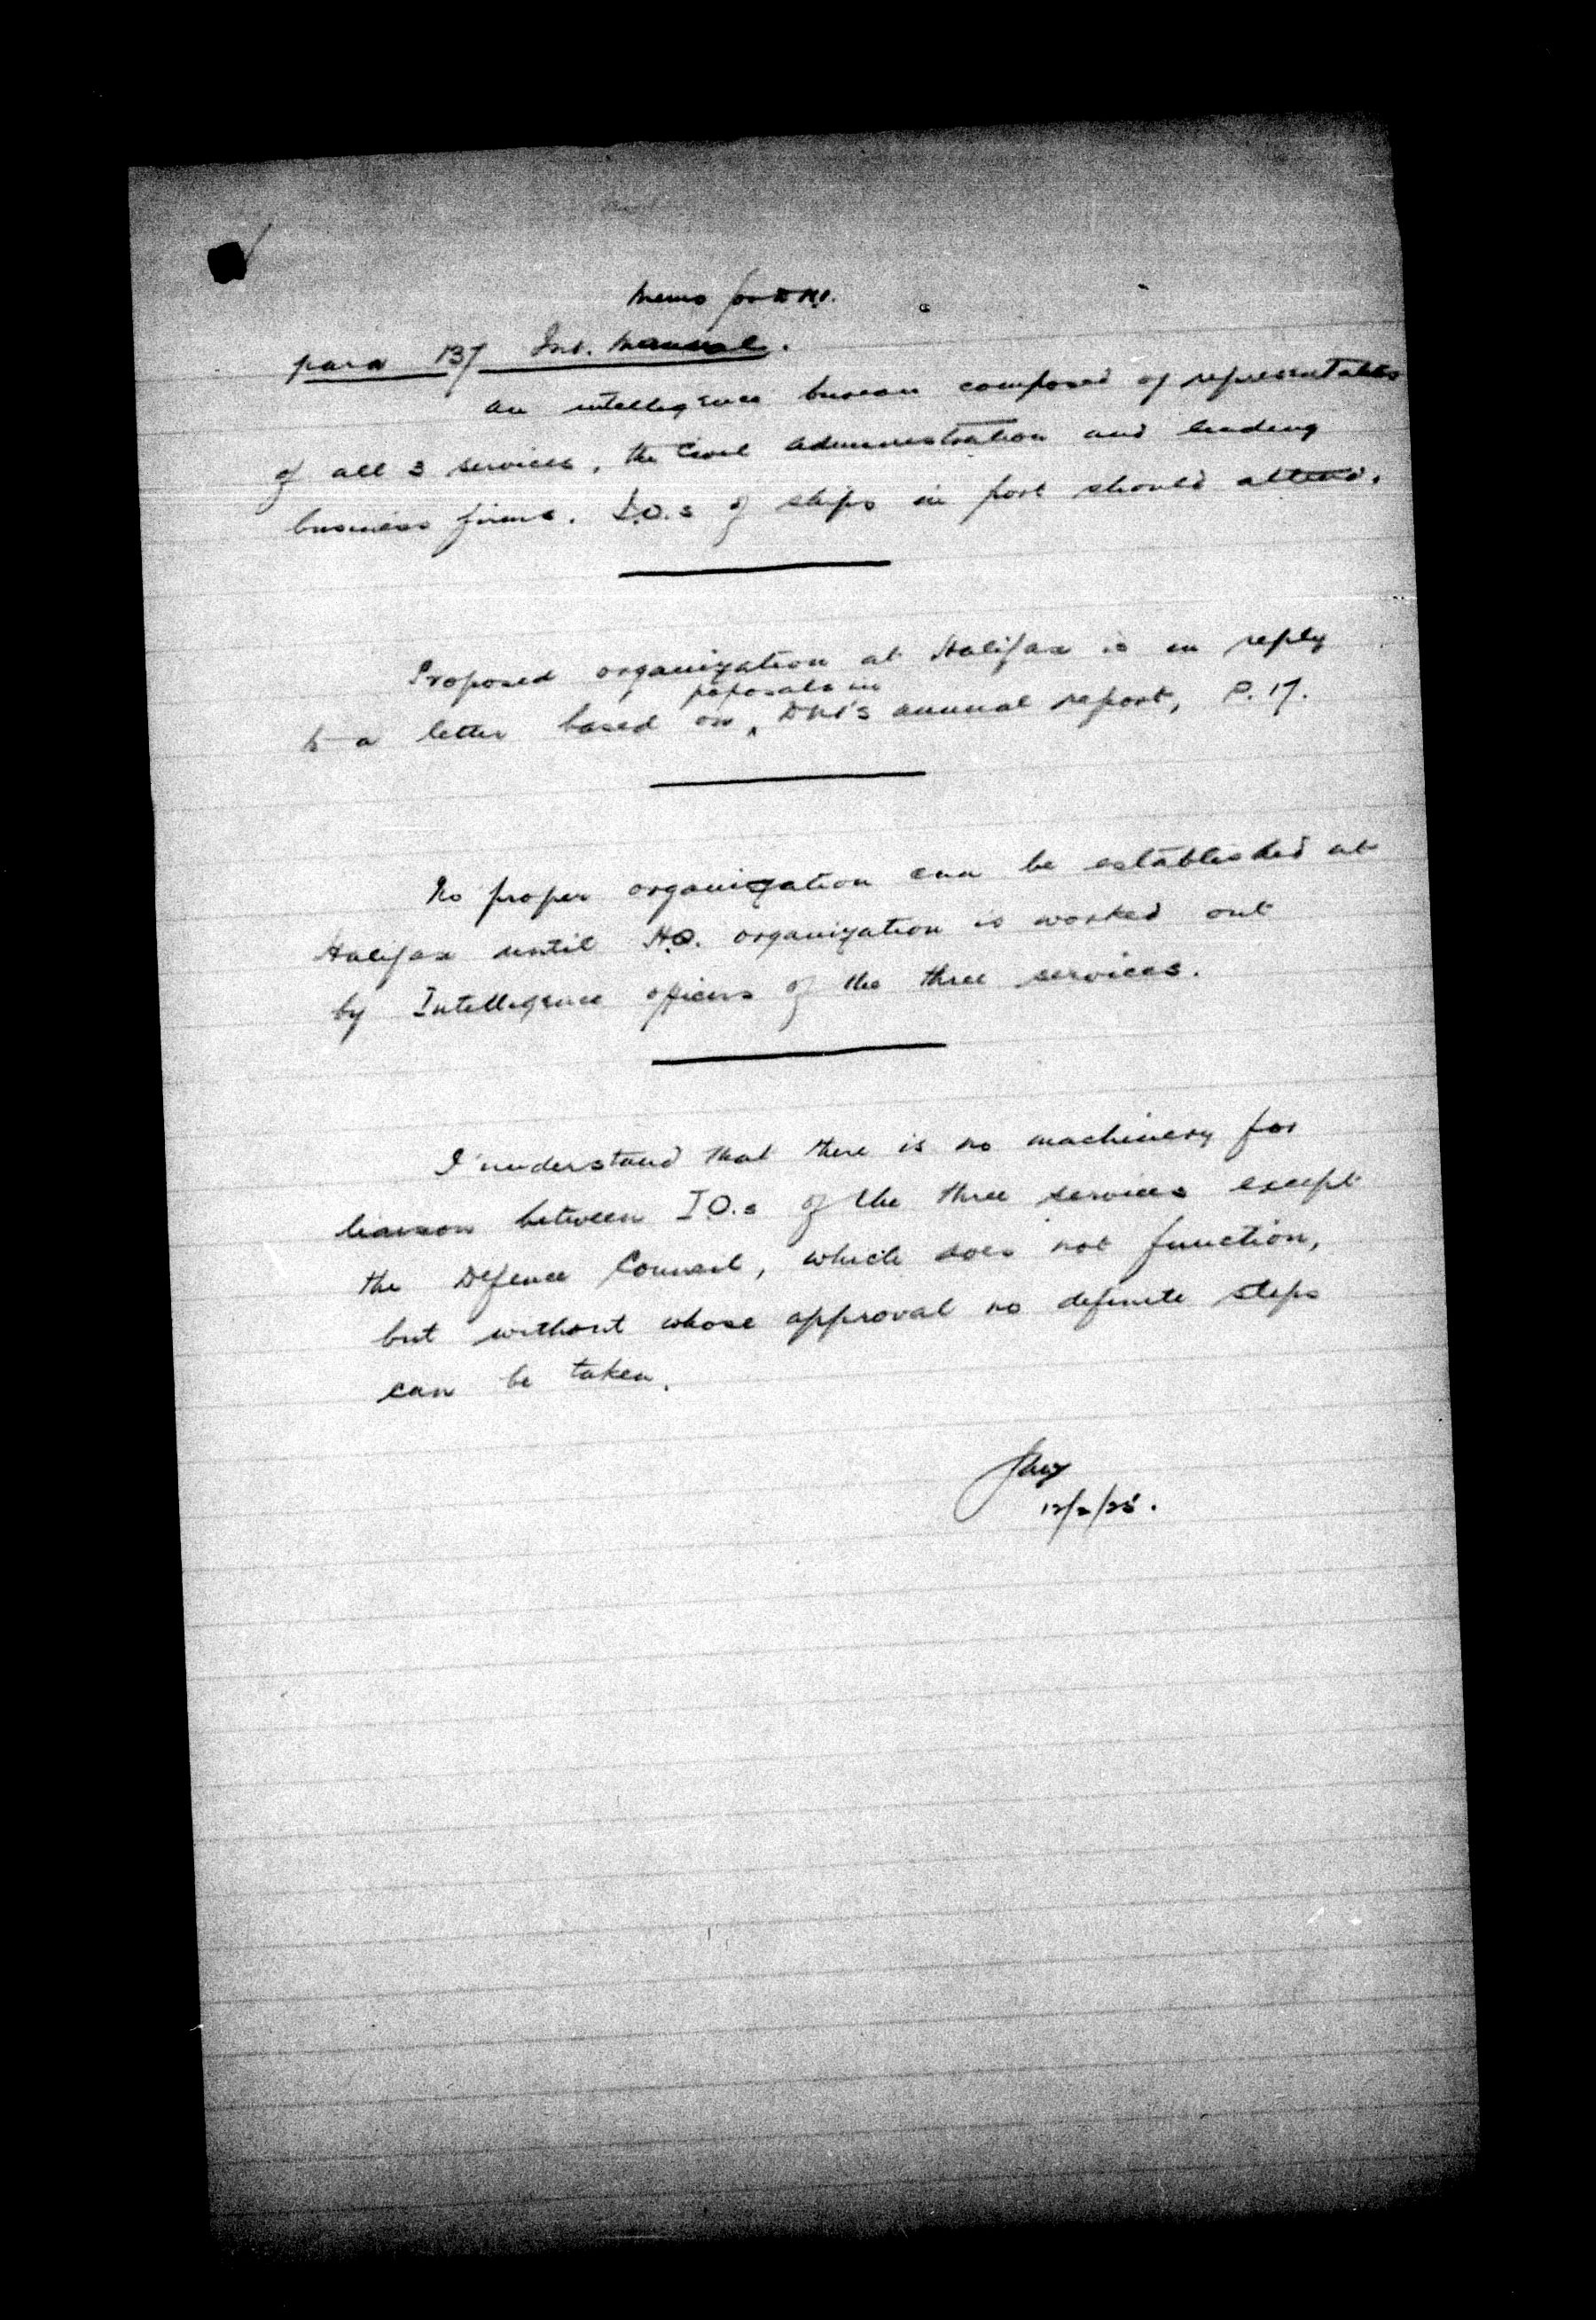 Memo for DNI.
para 137 Int. Manual.
An intelligence bureau composed of representatives
of all 3 services, the Civil Administration and leading
business firms. I.O.s of ships in port should attend.
Proposed organization at Halifax is in reply
proposals in
to a letter based on ^ DNI's annual report, P. 17.
No proper organization can be established at
Halifax until H.Q. organization is worked out
by Intelligence officers of the three services.
I understand that there is no machinery for
liaison between I.O.s of the three services except
the Defence Council, which does not function,
but without whose approval no definite steps
can be taken.
12/2/25.